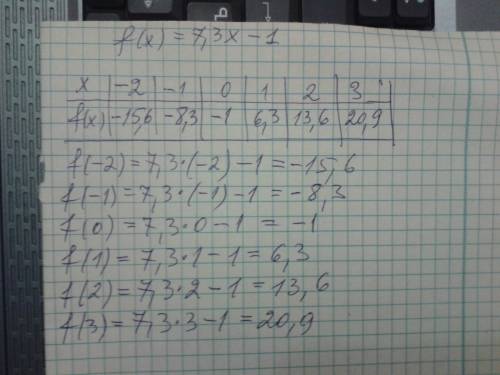 f(x) = 7,3x - 1
x | -2 | -1 | 0 | 1 | 2 | 3
f(x) | -15,6 | -8,3 | -1 | 6,3 | 13,6 | 20,9
f(-2) = 7,3·(-2) - 1 = -15,6
f(-1) = 7,3·(-1) - 1 = -8,3
f(0) = 7,3·0 - 1 = -1
f(1) = 7,3·1 - 1 = 6,3
f(2) = 7,3·2 - 1 = 13,6
f(3) = 7,3·3 - 1 = 20,9